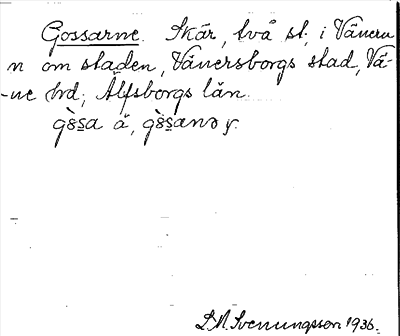 Gossarne. Skär, två st. i Vänern
n om staden, Vänersborgs stad, Vä-
-ne hd, Älfsborgs län.
gòs̱a å, gòs̱anə y.
S.A. Svenungsson 1936.